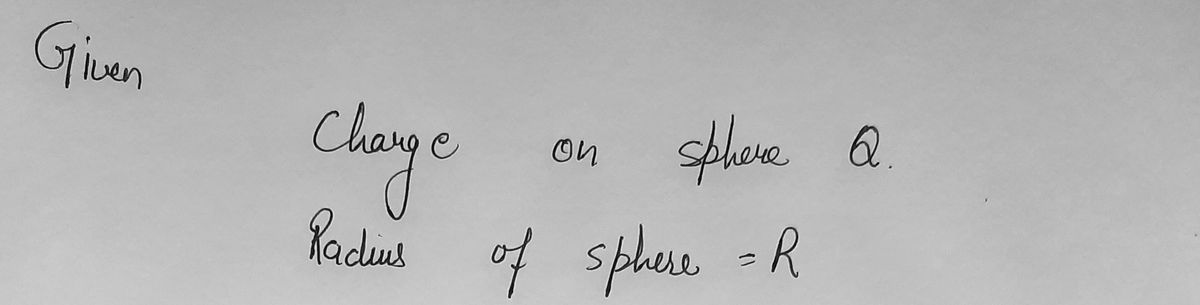 Given
Charge on sphere Q.
Radius of sphere = R